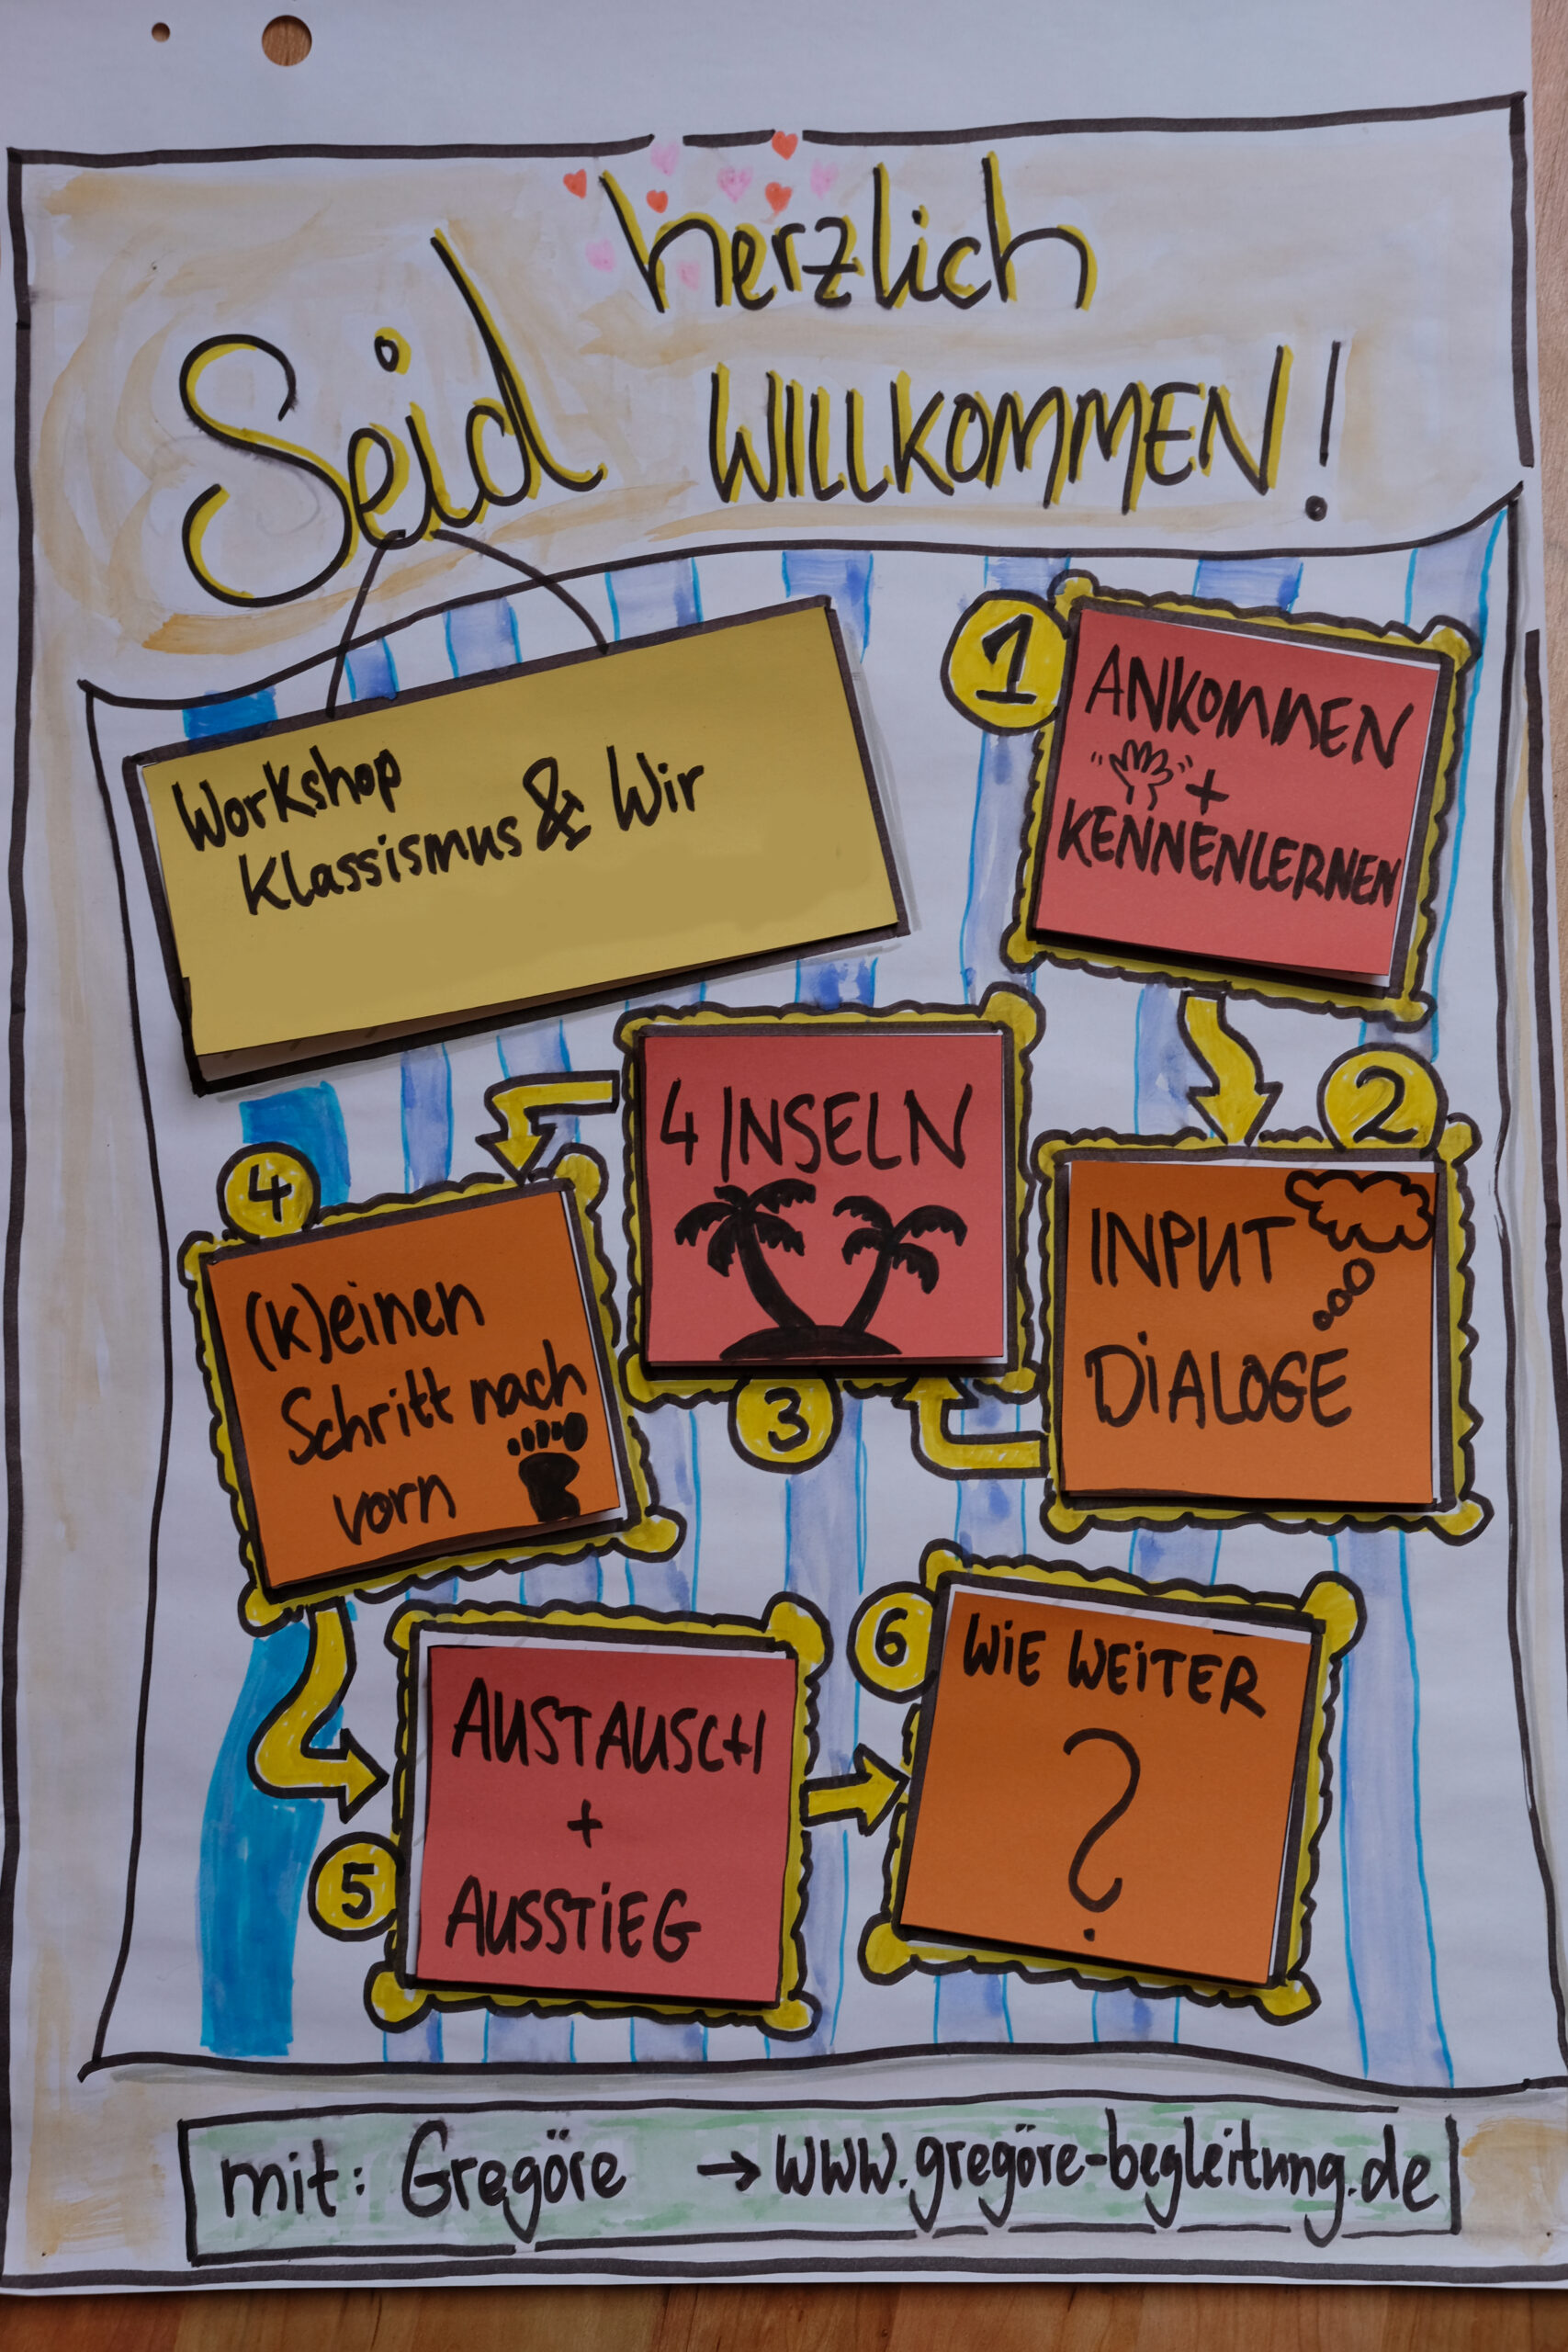 Seid herzlich
WILLKOMMEN!
Workshop
Klassismus & Wir
1
ANKOMMEN
+
KENNENLERNEN
2
INPUT
DIALOGE
4 INSELN
3
4
(K)einen
Schritt nach
vorn
5
AUSTAUSCH
+
AUSSTIEG
6
WIE WEITER
?
mit: Gregöre → www.gregöre-begleitung.de